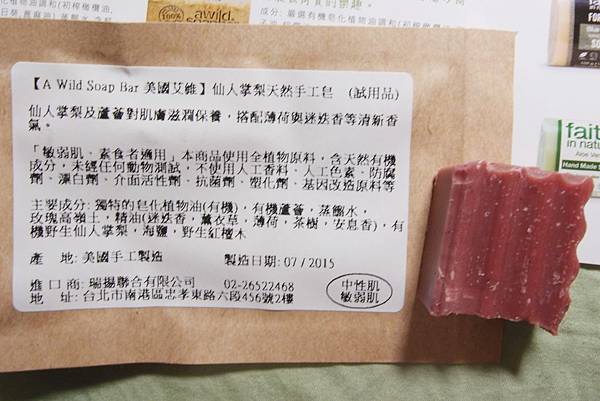 成分、嚴選有機皂化植物油調和(初榨橄欖油,
100%
awild
soap bar
【A Wild Soap Bar 美國艾維】仙人掌梨天然手工皂 (試用品)
仙人掌梨及蘆薈對肌膚滋潤保養，搭配薄荷與迷迭香等清新香
氣。
「敏弱肌、素食者適用」本商品使用全植物原料，含天然有機
成分，未經任何動物測試，不使用人工香料、人工色素、防腐
劑、漂白劑、介面活性劑、抗菌劑、塑化劑、基因改造原料等
主要成分: 獨特的皂化植物油(有機)，有機蘆薈，蒸餾水，
玫瑰高嶺土，精油(迷迭香，薰衣草，薄荷，茶樹，安息香)，有
機野生仙人掌梨，海鹽，野生紅檀木
產 地: 美國手工製造 製造日期: 07 / 2015
進口商: 瑞揚聯合有限公司 02-26522468
地 址: 台北市南港區忠孝東路六段456號2樓
中性肌
敏弱肌
FOR
faith
in nature
Aloe Vera
Hand Made S